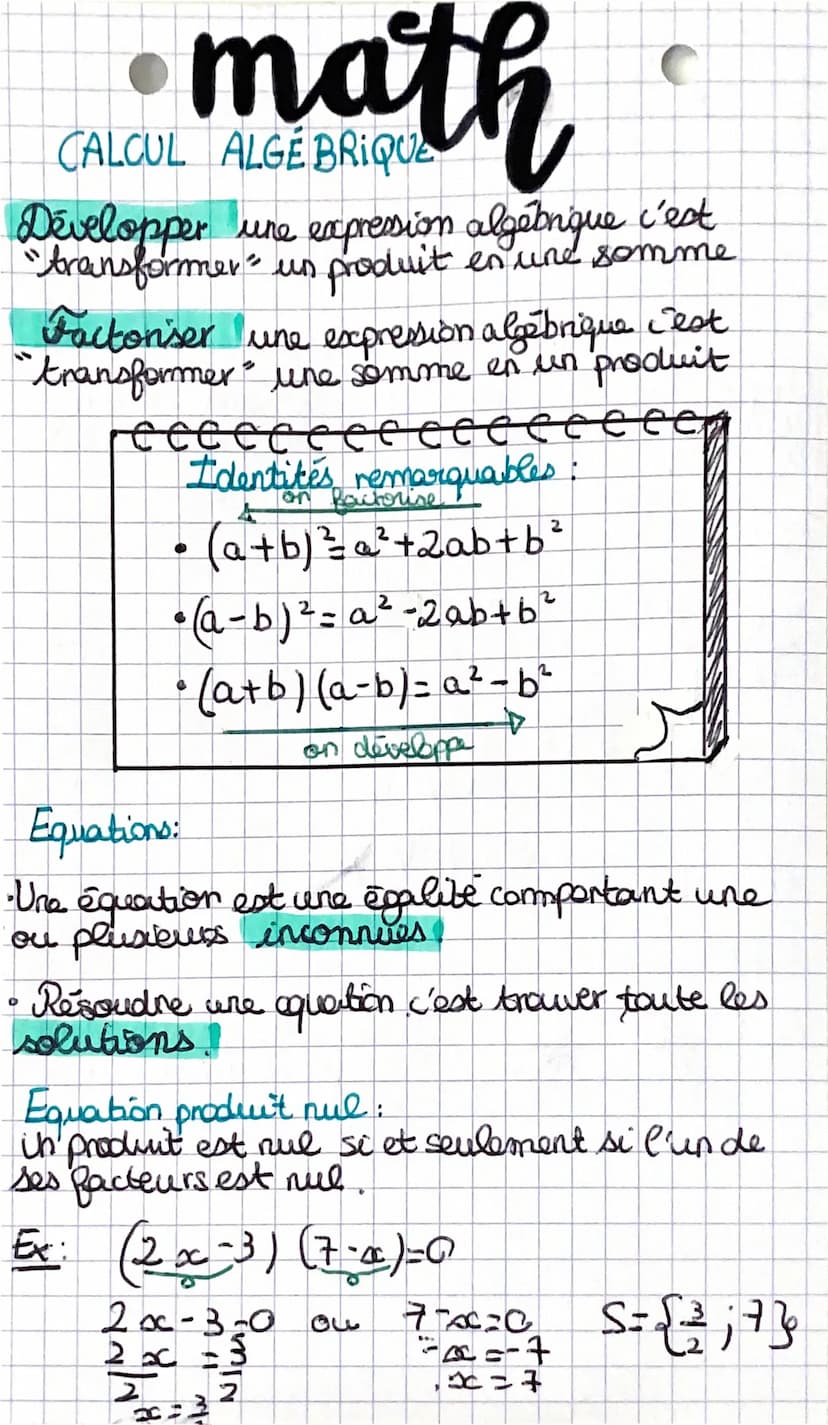 math
CALCUL ALGÉBRIQUE
Développer une expression algébrique c'est
"transformer" un produit en une somme
Factoriser une expression algébrique c'est
"transformer" une somme en un produit
Identités remarquables :
on factorise
• (a+b)²= a²+2ab+b²
• (a-b)²= a²-2ab+b²
• (a+b)(a-b)= a²-b²
on développe
Equations:
•Une équation est une égalité comportant une
ou plusieurs inconnues!
• Résoudre une équation c'est trouver toute les
solutions!
Equation produit nul :
Un produit est nul si et seulement si l'un de
ses facteurs est nul.
Ex: (2x-3) (7-x)=0
0 0
2x-3=0 ou 7-x=0 S={3/2 ; 7}
2x/2 = 3/2 -x=-7
x=3/2 x=7